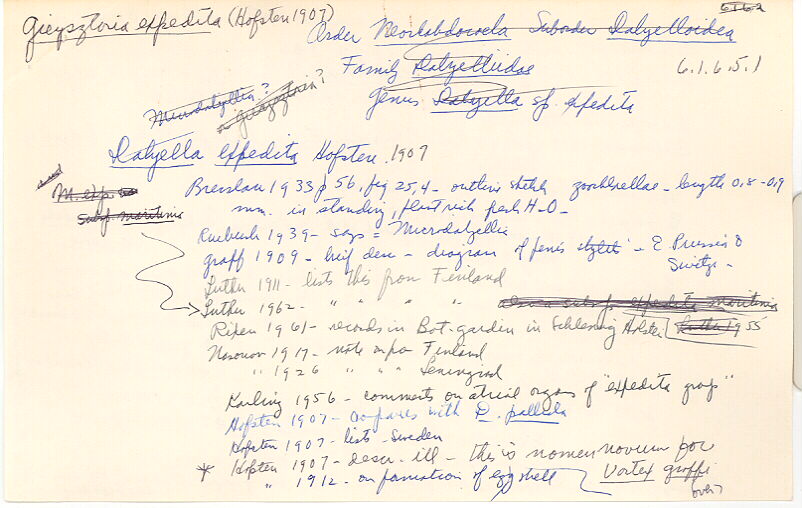 Gieysztoria expedita (Hofsten 1907)
Order Neorhabdocoela Suborder Dalyellioidea
Family Dalyelliidae 6.1.6.5.1
Microdalyellia? or Gieysztoria?
Genus Dalyella sp. expedita
Dalyella expedita Hofsten 1907
M. exp
subsp. maritima
Bresslau 1933 p 56, fig 25,4 - outline sketch zoochlorellae - length 0.8 - 0.9
mm. in standing, plant rich fresh H2O -
Ruebush 1939 - says = Microdalyellia
Graff 1909 - brief desc - diagram of penis stylets - E. Prussia &
Switz -
Luther 1911 - lists this from Finland
Luther 1962 - " " " " also a subsp. expedita maritima
Rixen 1961 - records in Bot. garden in Schleswig Holstein Luther 1955
Nasonov 1917 - note on from Finland
" 1926 " " " Leningrad
Karling 1956 - comments on atrial organs of "expedita group"
Hofsten 1907 - compares with D. pallida
Hofsten 1907 - lists - Sweden
* Hofsten 1907 - descr. ill - this is nomen novum for
Vortex graffi
" 1912 - on formation of egg shell
over→